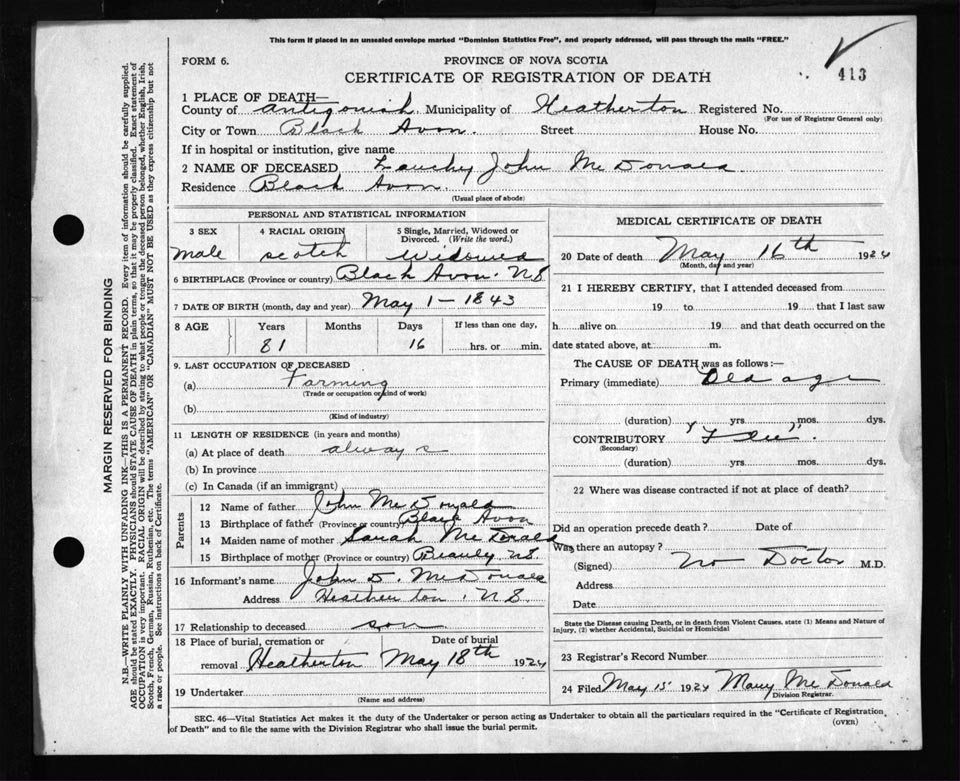 This form if placed in an unsealed envelope marked "Dominion Statistics Free", and properly addressed, will pass through the mails "FREE."
FORM 6.
PROVINCE OF NOVA SCOTIA
CERTIFICATE OF REGISTRATION OF DEATH
413
1 PLACE OF DEATH—
County of Antigonish Municipality of Heatherton Registered No.
(For use of Registrar General only)
City or Town Black Avon. Street House No.
If in hospital or institution, give name
2 NAME OF DECEASED Lauchy John McDonald
Residence Black Avon.
(Usual place of abode)
PERSONAL AND STATISTICAL INFORMATION
3 SEX 4 RACIAL ORIGIN 5 Single, Married, Widowed or Divorced. (Write the word.)
male scotch Widowed
6 BIRTHPLACE (Province or country) Black Avon. NS
7 DATE OF BIRTH (month, day and year) May 1 - 1843
8 AGE Years Months Days If less than one day,
81 16 hrs. or min.
9. LAST OCCUPATION OF DECEASED
(a) Farming
(Trade or occupation or kind of work)
(b)
(Kind of industry)
11 LENGTH OF RESIDENCE (in years and months)
(a) At place of death always
(b) In province
(c) In Canada (if an immigrant)
Parents
12 Name of father John McDonald
13 Birthplace of father (Province or country) Black Avon
14 Maiden name of mother Sarah McDonald
15 Birthplace of mother (Province or country) Beauly NS
16 Informant's name John D. McDonald
Address Heatherton. NS.
17 Relationship to deceased son
18 Place of burial, cremation or removal Heatherton Date of burial May 18th 1924
19 Undertaker
(Name and address)
MEDICAL CERTIFICATE OF DEATH
20 Date of death May 16th 1924
(Month, day and year)
21 I HEREBY CERTIFY, that I attended deceased from
19 to 19 that I last saw
h alive on 19 and that death occurred on the
date stated above, at m.
The CAUSE OF DEATH was as follows:—
Primary (immediate) Old age
(duration) yrs. mos. dys.
CONTRIBUTORY "Flu".
(Secondary)
(duration) yrs. mos. dys.
22 Where was disease contracted if not at place of death?
Did an operation precede death? Date of
Was there an autopsy?
(Signed) No Doctor M.D.
Address
Date
State the Disease causing Death, or in death from Violent Causes, state (1) Means and Nature of Injury, (2) whether Accidental, Suicidal or Homicidal
23 Registrar's Record Number
24 Filed May 15 1924 Mary McDonald
Division Registrar.
SEC. 46—Vital Statistics Act makes it the duty of the Undertaker or person acting as Undertaker to obtain all the particulars required in the "Certificate of Registration
of Death" and to file the same with the Division Registrar who shall issue the burial permit.
(OVER)
MARGIN RESERVED FOR BINDING
N.B.—WRITE PLAINLY WITH UNFADING INK—THIS IS A PERMANENT RECORD. Every item of information should be carefully supplied.
AGE should be stated EXACTLY. PHYSICIANS should STATE CAUSE OF DEATH in plain terms, so that it may be properly classified. Exact statement of
OCCUPATION is very important. RACIAL ORIGIN will be described by stating to what people or tongue the deceased person belonged, whether English, Irish,
Scotch, French, German, Russian, Ruthenian, etc. The terms "AMERICAN" OR "CANADIAN" MUST NOT BE USED as they express citizenship but not
a race or people. See instructions on back of Certificate.